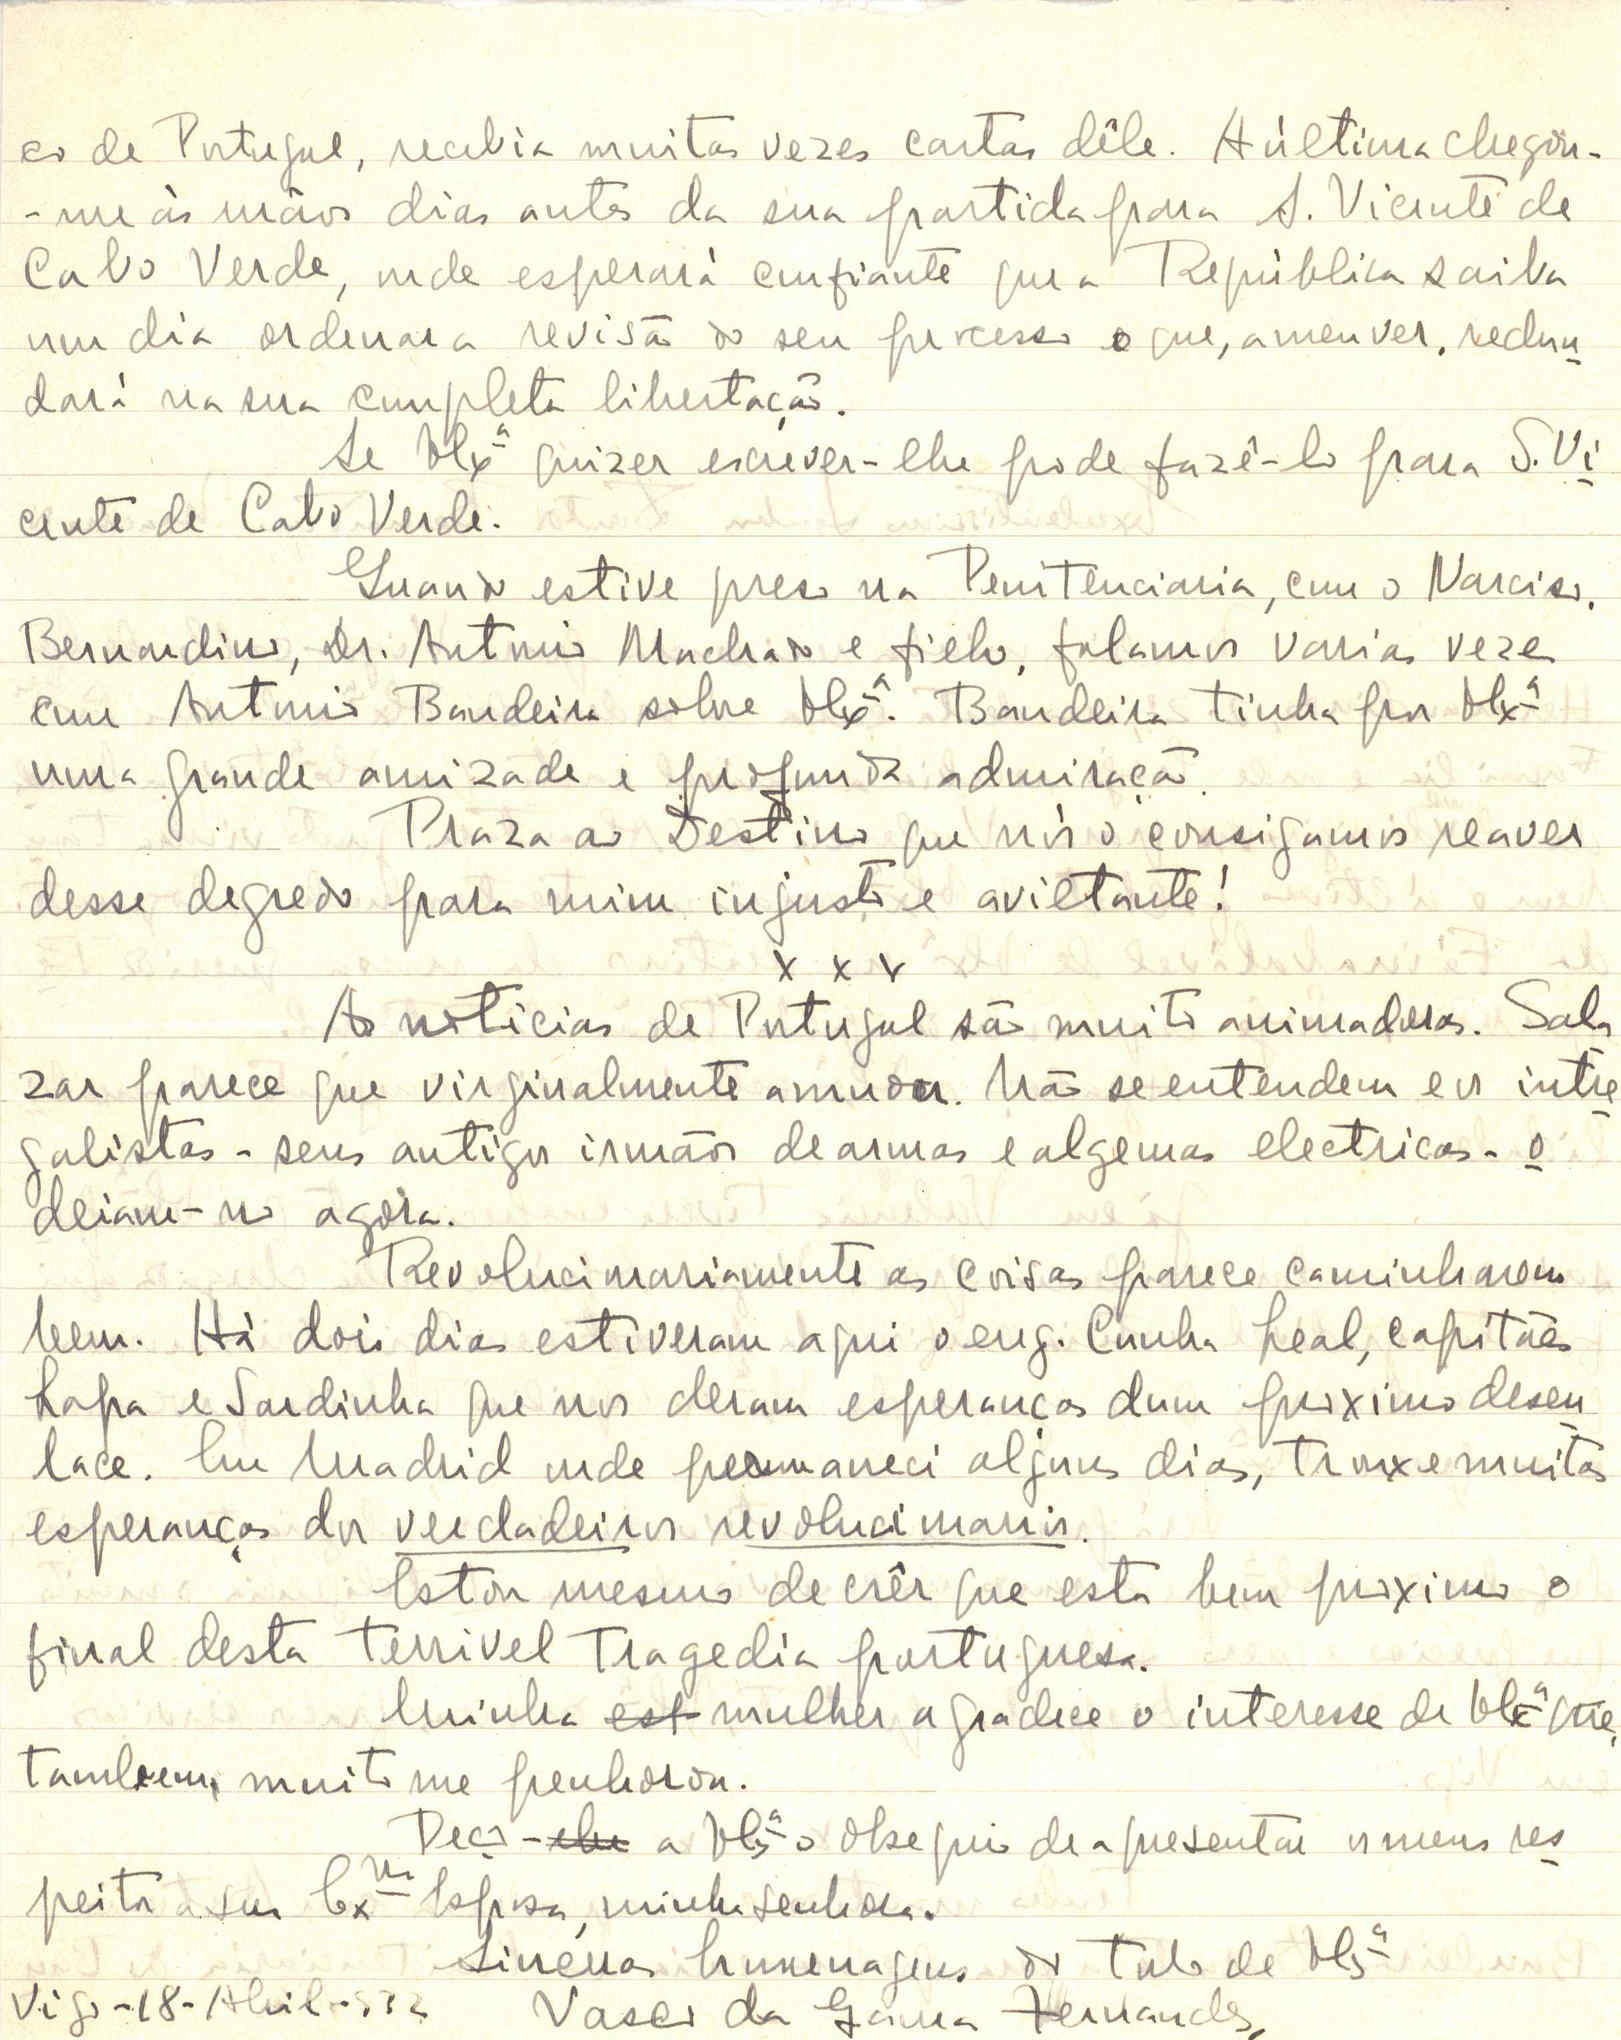 co de Portugal, recebia muitas vezes cartas dêle. A última chegou-
-me às mãos dias antes da sua partida para S. Vicente de
Cabo Verde, onde esperará confiante que a República saiba
um dia ordenar a revisão do seu processo o que, a meu ver, redun
dará na sua completa libertação.
Se V. Exª quizer escrever-lhe pode fazê-lo para S. Vi
cente de Cabo Verde.
Quando estive preso na Penitenciaria, com o Narciso,
Bernardino, Dr. Antonio Machado e filho, falamos varias vezes
com Antonio Bandeira sobre V. Exª. Bandeira tinha por V. Exª
uma grande amizade e profunda admiração.
Praza ao Destino que nós o consigamos reaver
desse degredo para mim injusto e aviltante!
x x x
As noticias de Portugal são muito animadoras. Sala
zar parece que virginalmente amuou. Não se entendem e os inte
galistas - seus antigos irmãos de armas e algemas electricas - o
deiam-no agora.
Revolucionariamente as coisas parece caminharem
bem. Há dois dias estiveram aqui o eng. Cunha Leal, capitães
Lapa e Sardinha que nos deram esperanças dum proximo desen
lace. Em Madrid onde permaneci alguns dias, trouxe muitas
esperanças dos verdadeiros revolucionarios.
Estou mesmo de crêr que está bem proximo o
final desta terrivel tragedia portuguesa.
Minha est mulher agradece o interesse de V. Exª que,
tambem, muito me penhorou.
Peço-lhe a V. Exª o obsequio de apresentar os meus res
peitos a sua Exma Esposa, minha senhora.
Sinceras homenagens do todo de V. Exª
Vigo - 18 - Abril - 932 Vasco da Gama Fernandes,